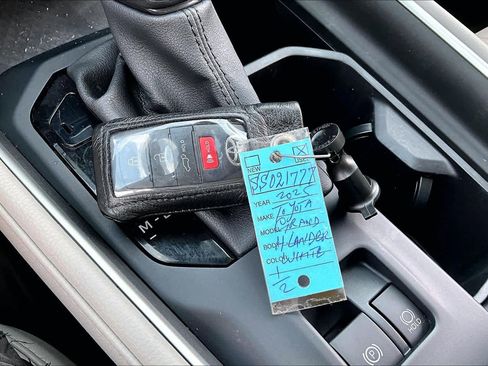 NEW
USED
SS021777
YEAR 2025
MAKE TOYOTA
MODEL GRAND
BODY HLANDER
COLOR WHITE
1/2
P
HOLD